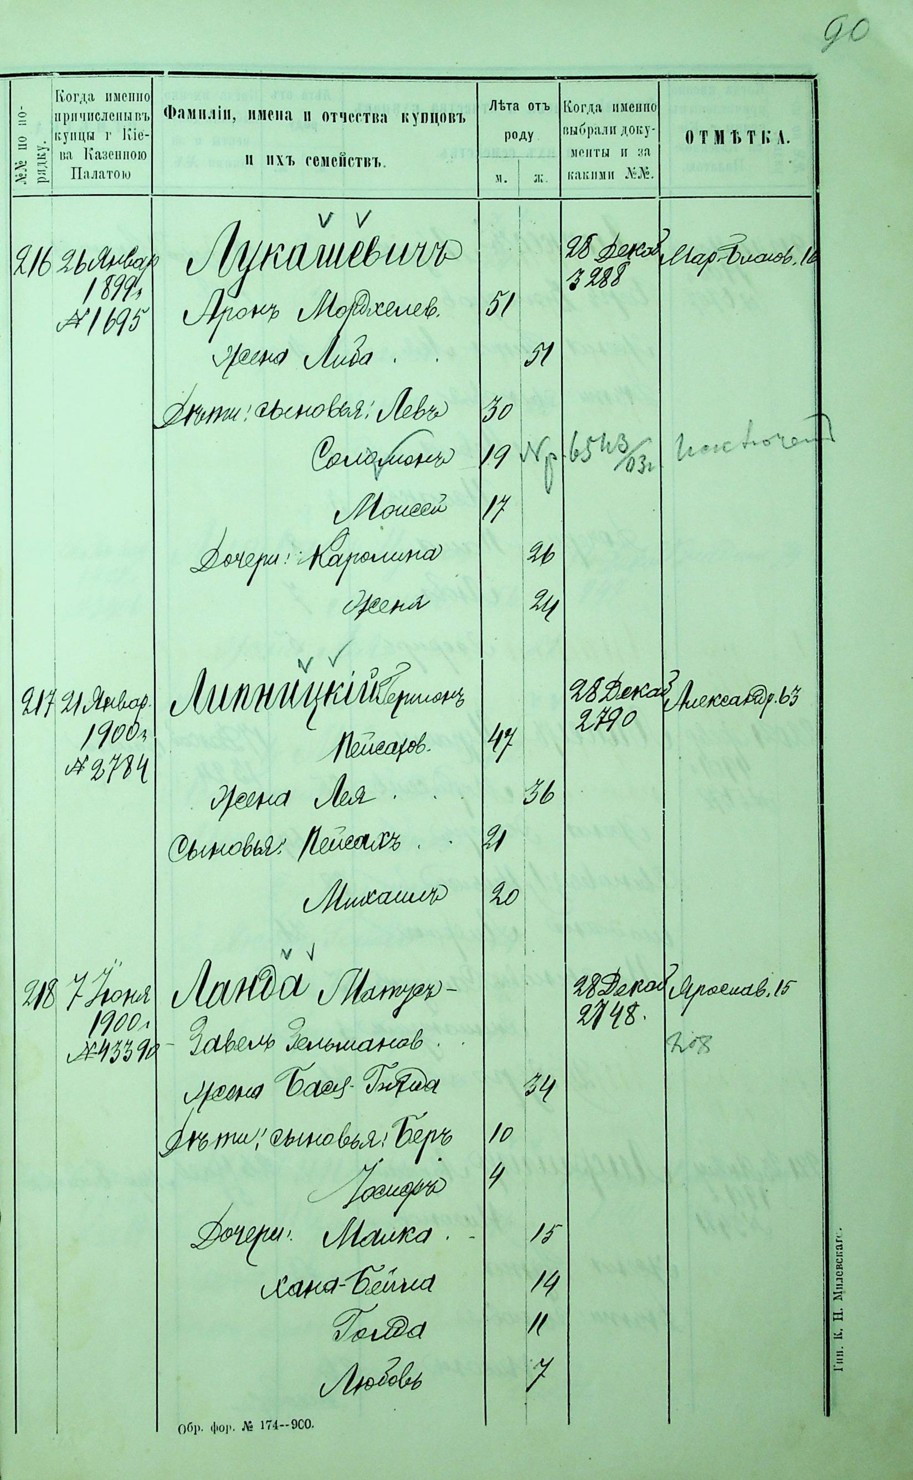 90
№№ по по-
рядку.
Когда именно
причислены въ
купцы г Кіе-
ва Казенною
Палатою
Фамиліи, имена и отчества купцовъ
и ихъ семействъ.
Лѣта отъ
роду.
м. ж.
Когда именно
выбрали доку-
менты и за
какими №№.
ОТМѢТКА.
216 26 Январ Лукашевичъ 28 Декаб Мар-Благов. 16
1899 г. 3288
№ 1695 Аронъ Мордхелев. 51
Жена Либа . . 51
Дѣти: сыновья: Левъ 30
Соломонъ 19 Пр. 6543/03 г. Исключен
Моисей 17
Дочери: Каролина 26
Женя 24
217 21 Январ. Липницкій Гершонъ 28 Декаб Александр. 63
1900 г. 2790
№ 2784 Пейсахов. 47
Жена Лея . . 36
Сыновья: Пейсахъ . . 21
Михаилъ 20
218 7 Іюня Ланда Матусъ- 28 Декаб Ярослав. 15
1900 г. 2748.
№ 43390 - Завелъ Зельманов . . 208
Жена Бася-Гнѣда 34
Дѣти: сыновья: Беръ 10
Іосифъ 4
Дочери: Малка . - 15
Хана-Бейла 14
Голда 11
Любовь 7
Обр. фор. № 174--900.
Тип. К. Н. Милевскаго.